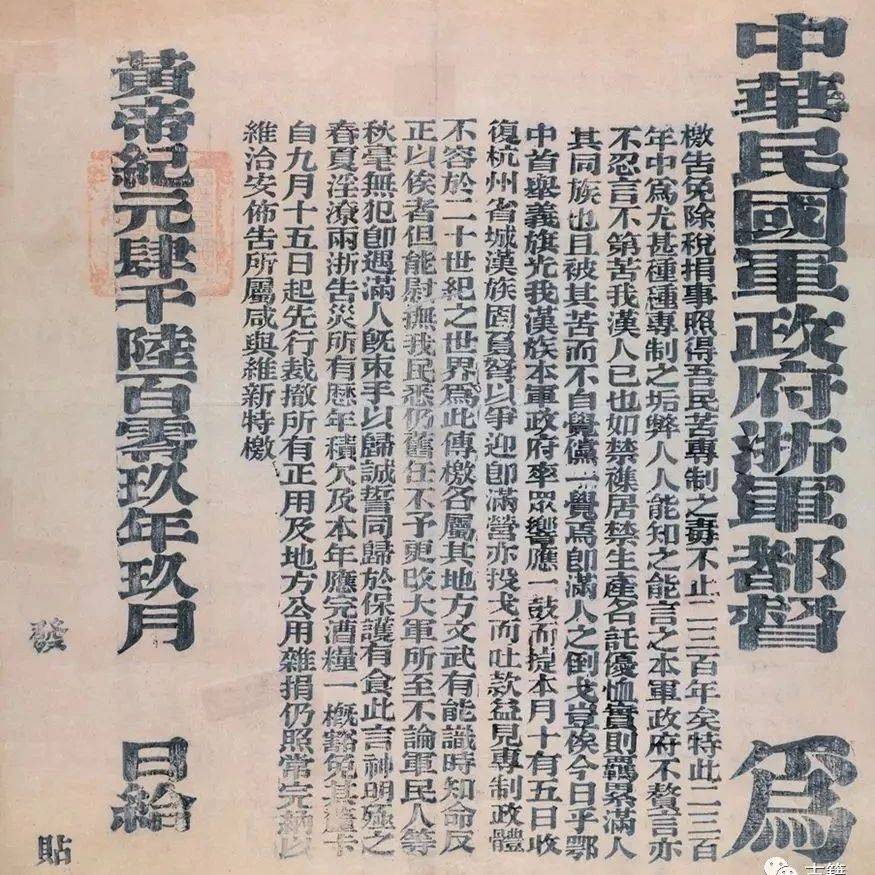 中華民國軍政府浙軍都督 爲
檄告免除稅捐事照得吾民苦專制之毒不止二三百年矣特此二三百
年中爲尤甚種種專制之垢弊人人能知之能言之本軍政府不贅言亦
不忍言不第苦我漢人已也如禁雜居禁生產名託優恤實則羈累滿人
其同族也且被其苦而不自覺儻一覺焉卽滿人之倒戈豈俟今日乎鄂
中首舉義旗光我漢族本軍政府率眾響應一鼓而捷本月十有五日收
復杭州省城漢族固負弩以爭迎卽滿營亦投戈而吐款益見專制政體
不容於二十世紀之世界爲此傳檄各屬其地方文武有能識時知命反
正以俟者但能慰撫我民悉仍舊任不予更改大軍所至不論軍民人等
秋毫無犯卽遇滿人旣束手以歸誠誓同歸於保護有食此言神明殛之
春夏淫潦兩浙告災所有歷年積欠及本年應完漕糧一概豁免其釐卡
自九月十五日起先行裁撤所有正用及地方公用雜捐仍照常完納以
維治安佈告所屬咸與維新特檄
黃帝紀元肆千陸百零玖年玖月 日給
發 貼
古籍